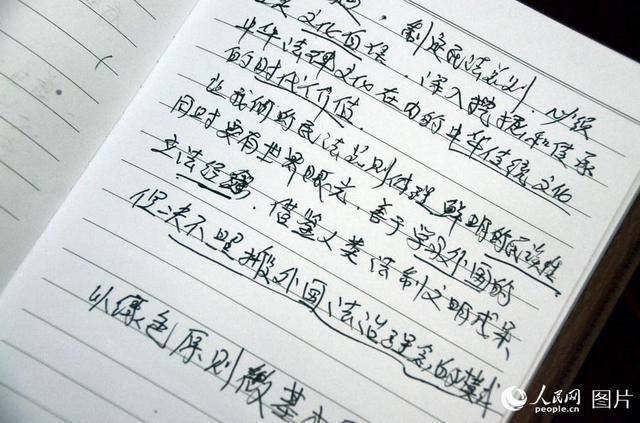 ，制定民法总则，必须
文化自信，深入挖掘和传承
中华法律文化在内的中华传统文化
的时代价值.
让我们的民法总则体现鲜明的民族性.
同时要有世界眼光，善于学习外国的
立法经验，借鉴人类法制文明成果
但决不照搬外国法治理念的模式
以绿色原则做基本
人民网 图片
people.cn